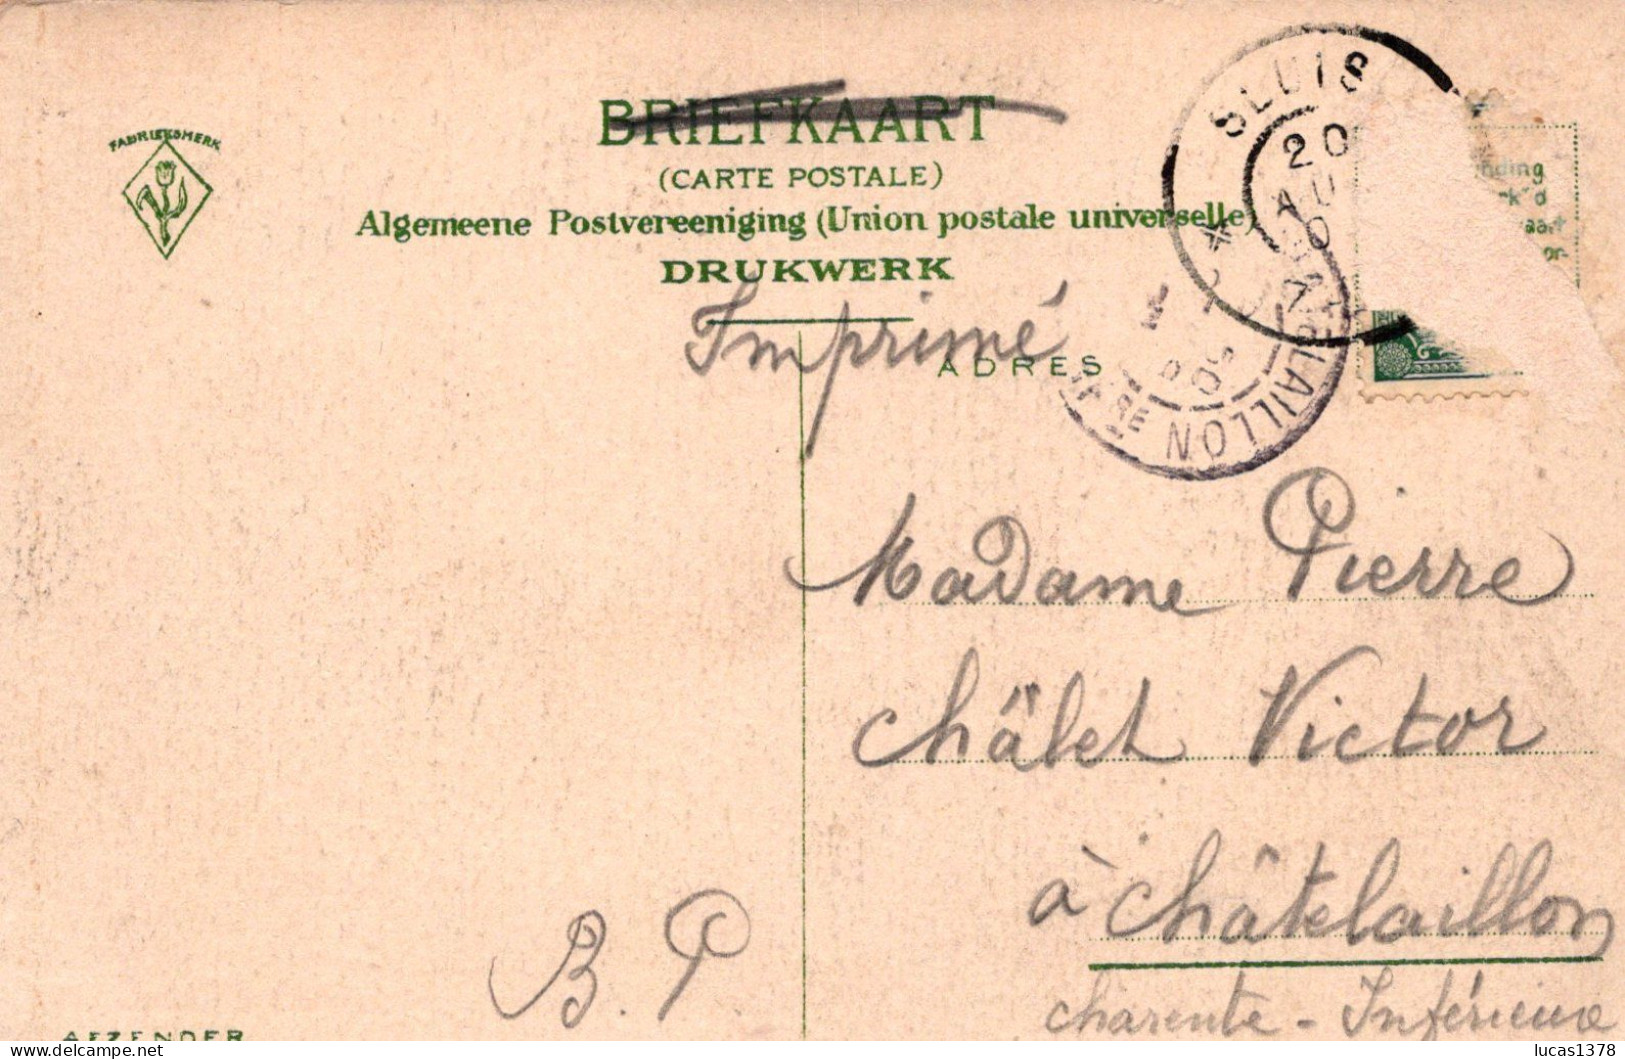 FABRIEKSMERK
BRIEFKAART
(CARTE POSTALE)
Algemeene Postvereeniging (Union postale universelle)
DRUKWERK
Imprimé
ADRES
SLUIS
20
AU
CHATELAILLON
Madame Pierre
Châlet Victor
à Châtelaillon
Charente-Inférieure
B. P
AFZENDER
lucas1378
www.delcampe.net